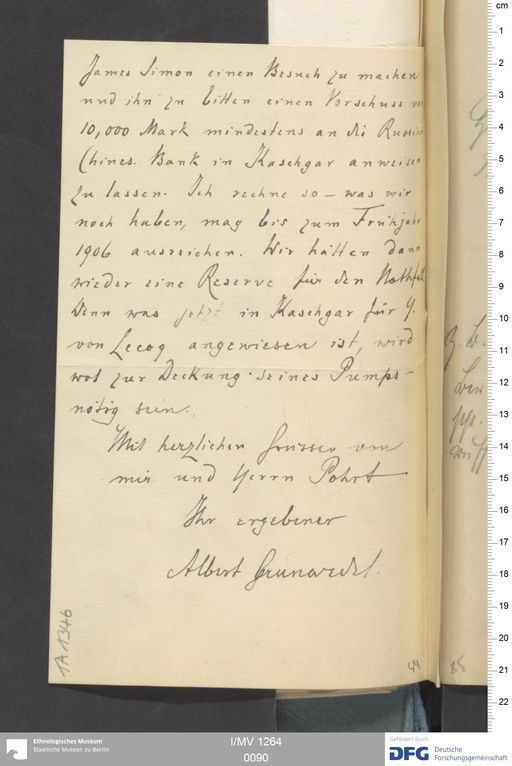 James Simon einen Besuch zu machen
und ihn zu bitten einen Vorschuss von
10,000 Mark mindestens an die Russisch
Chines. Bank in Kaschgar anweisen
zu lassen. Ich rechne so – was wir
noch haben, mag bis zum Frühjahr
1906 ausreichen. Wir hätten dann
wieder eine Reserve für den Nothfall
Denn was jetzt in Kaschgar für H.
von Lecoq angewiesen ist, wird
wol zur Deckung seines Pumps-
nötig sein.
Mit herzlichen Grüssen von
mir und Herrn Pohrt
Ihr ergebener
Albert Grünwedel.
1A 1346
44
z. B.
cm
1
2
3
4
5
6
7
8
9
10
11
12
13
14
15
16
17
18
19
20
21
22
Ethnologisches Museum
Staatliche Museen zu Berlin
I/MV 1264
0090
Gefördert durch
DFG Deutsche
Forschungsgemeinschaft